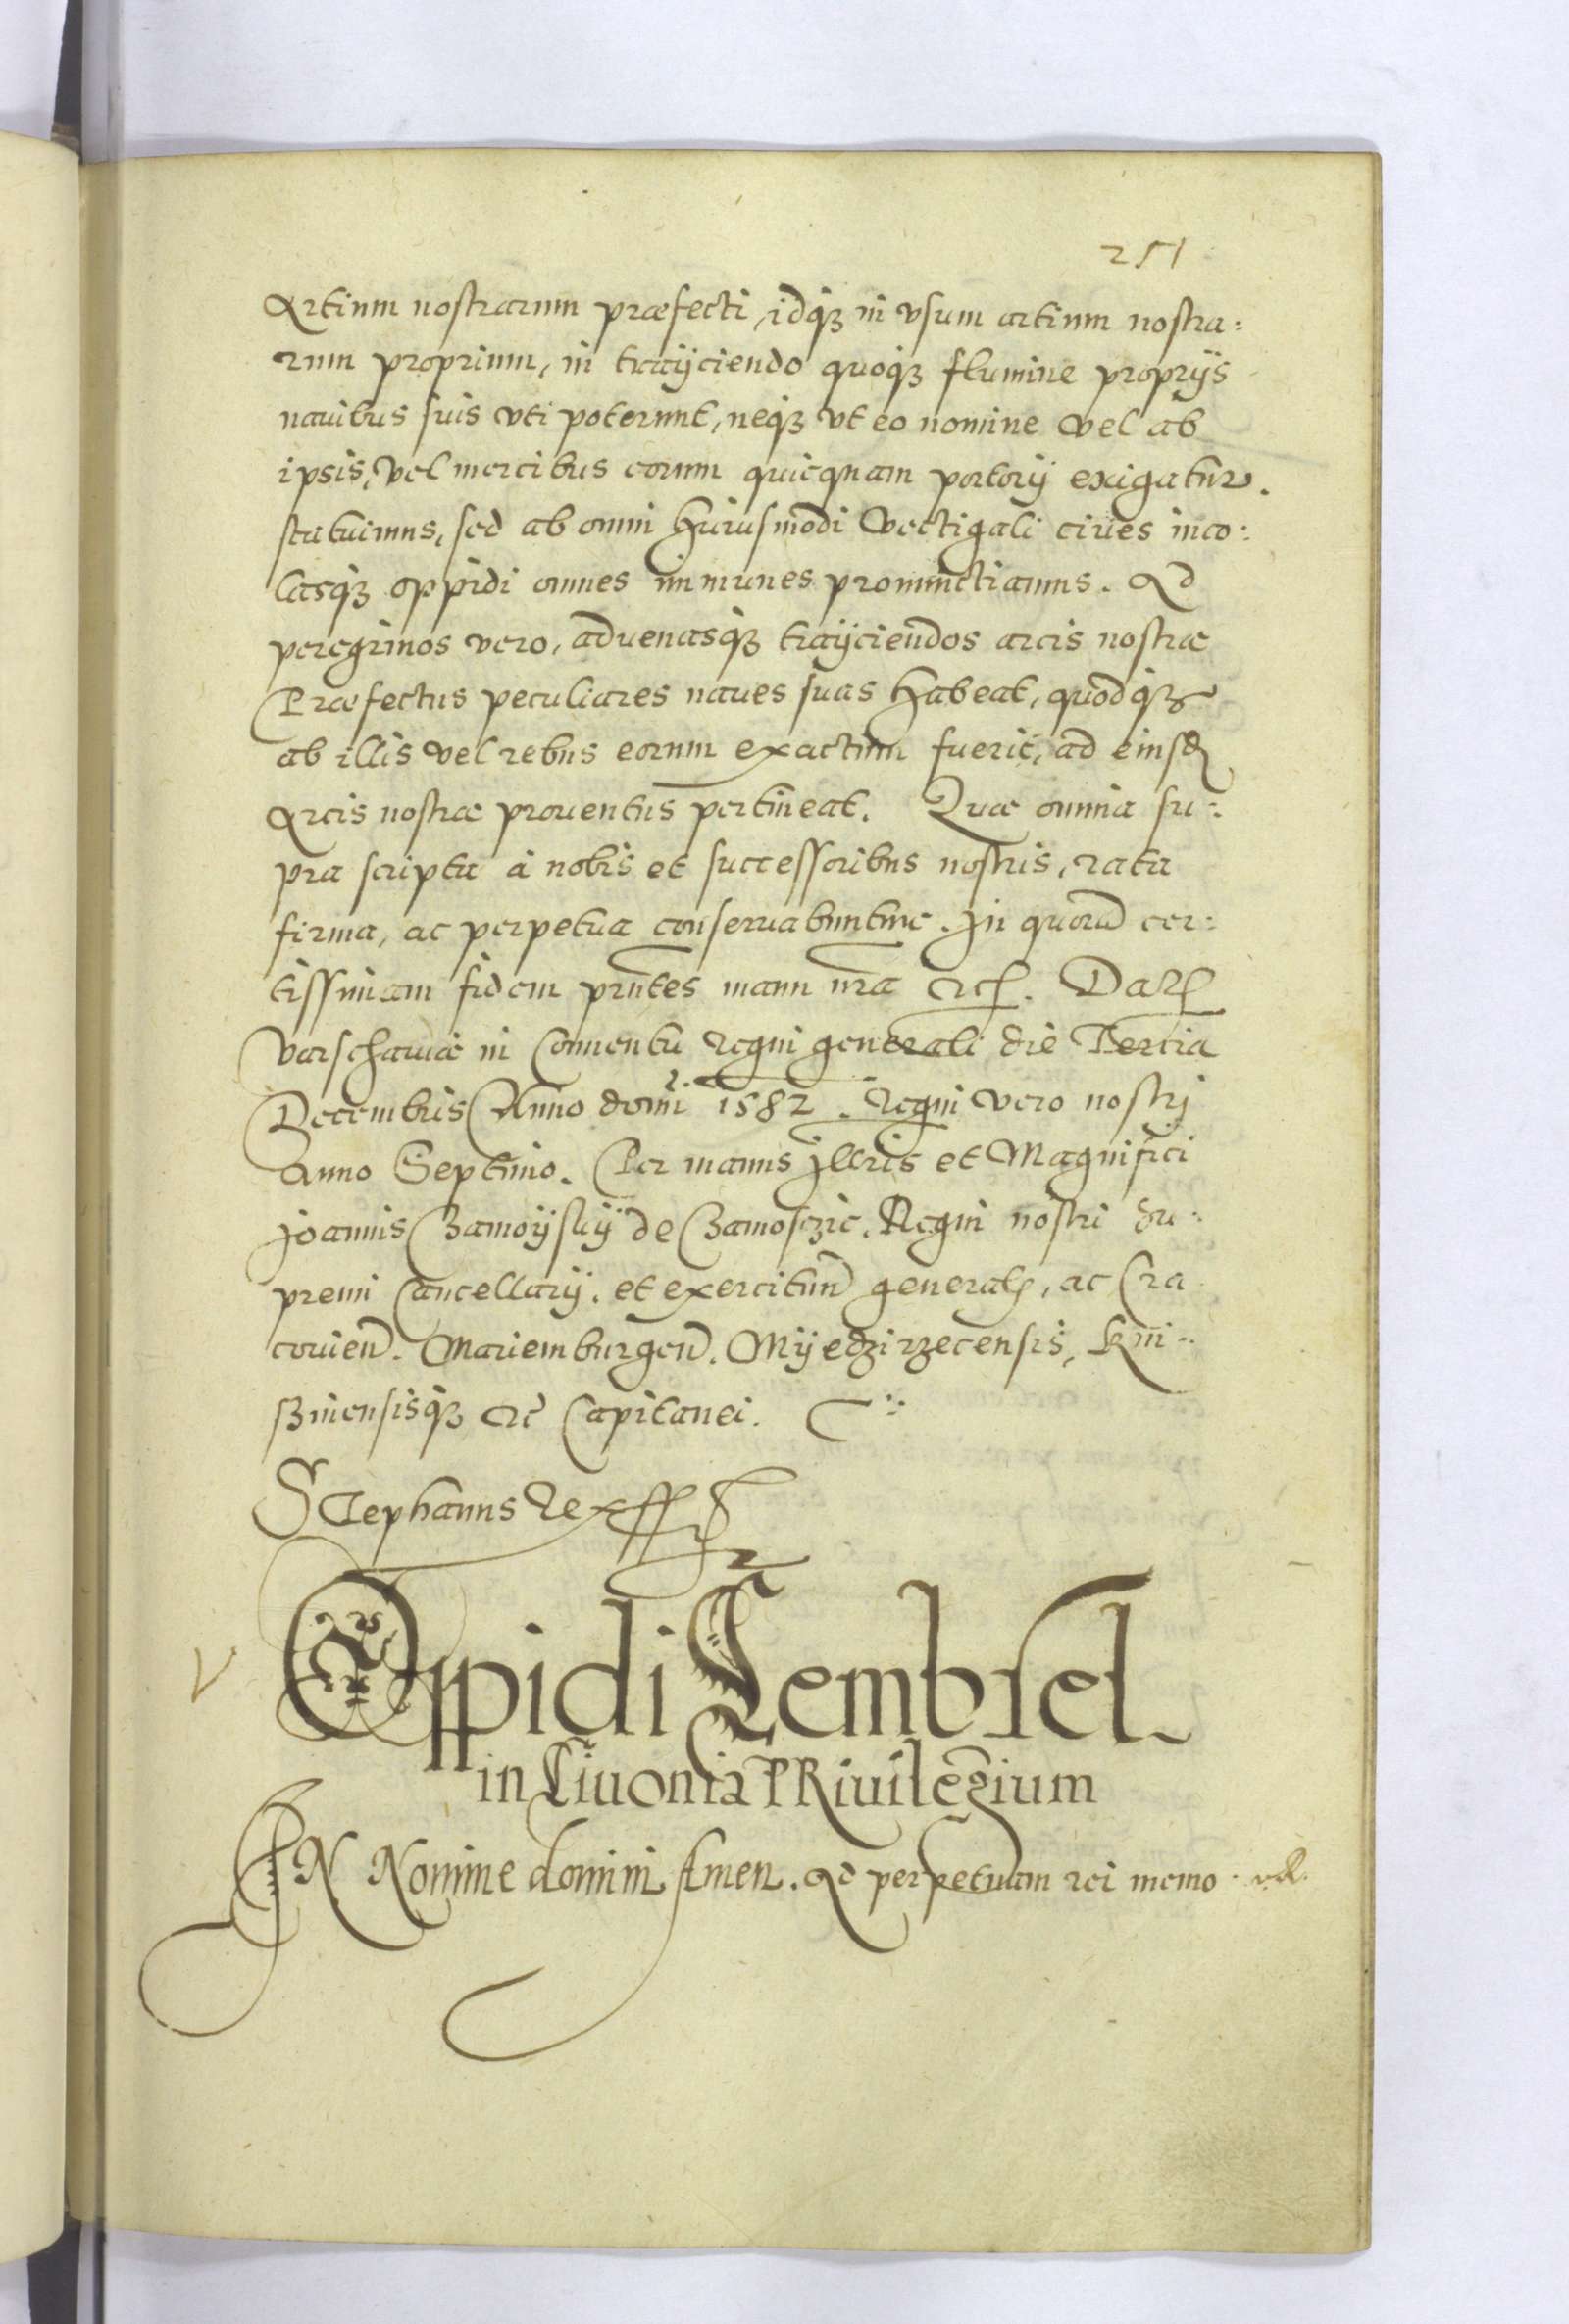 251
Artium nostrarum præfecti, idq; in vsum artium nostra=
rum proprium, in traijciendo quoq; flumine proprijs
nauibus suis vti poterunt, neq; vt eo nomine vel ab
ipsis, vel mercibus eorum quicquam portorij exigatur.
statuimus, sed ab omni huiusmodi vectigali ciues inco:
lasq; oppidi omnes immunes pronunctiamus. Ad
peregrinos vero, aduenasq; traijciendos arcis nostræ
Præfectus peculiares naues suas habeat, quodq;
ab illis vel rebus eorum exactum fuerit, ad eiusd
Arcis nostræ prouentus pertineat. Quæ omnia su:
pra scripta à nobis et successoribus nostris, rata
firma, ac perpetua conseruabuntur. In quorū cer:
tissimam fidem prntes manu nra etc. Dat
Varschauiæ in Conuentu regni generali die Tertia
Decembris Anno domi 1582. regni vero nostri
Anno Septimo. Per manus Jllris et Magnifici
Joannis Zamoijskij de Zamosczie. Regni nostri Su:
premi Cancellarij. et exercituū general, ac Cra
couien. Mariemburgen. Mijedzirzecensis, Kni:
szinensisq; etc Capitanei.
Stephanus Rex
V
Oppidi Lembsel
in Liuonia PRiuilegium
IN Nomine domini Amen. Ad perpetuam rei memo